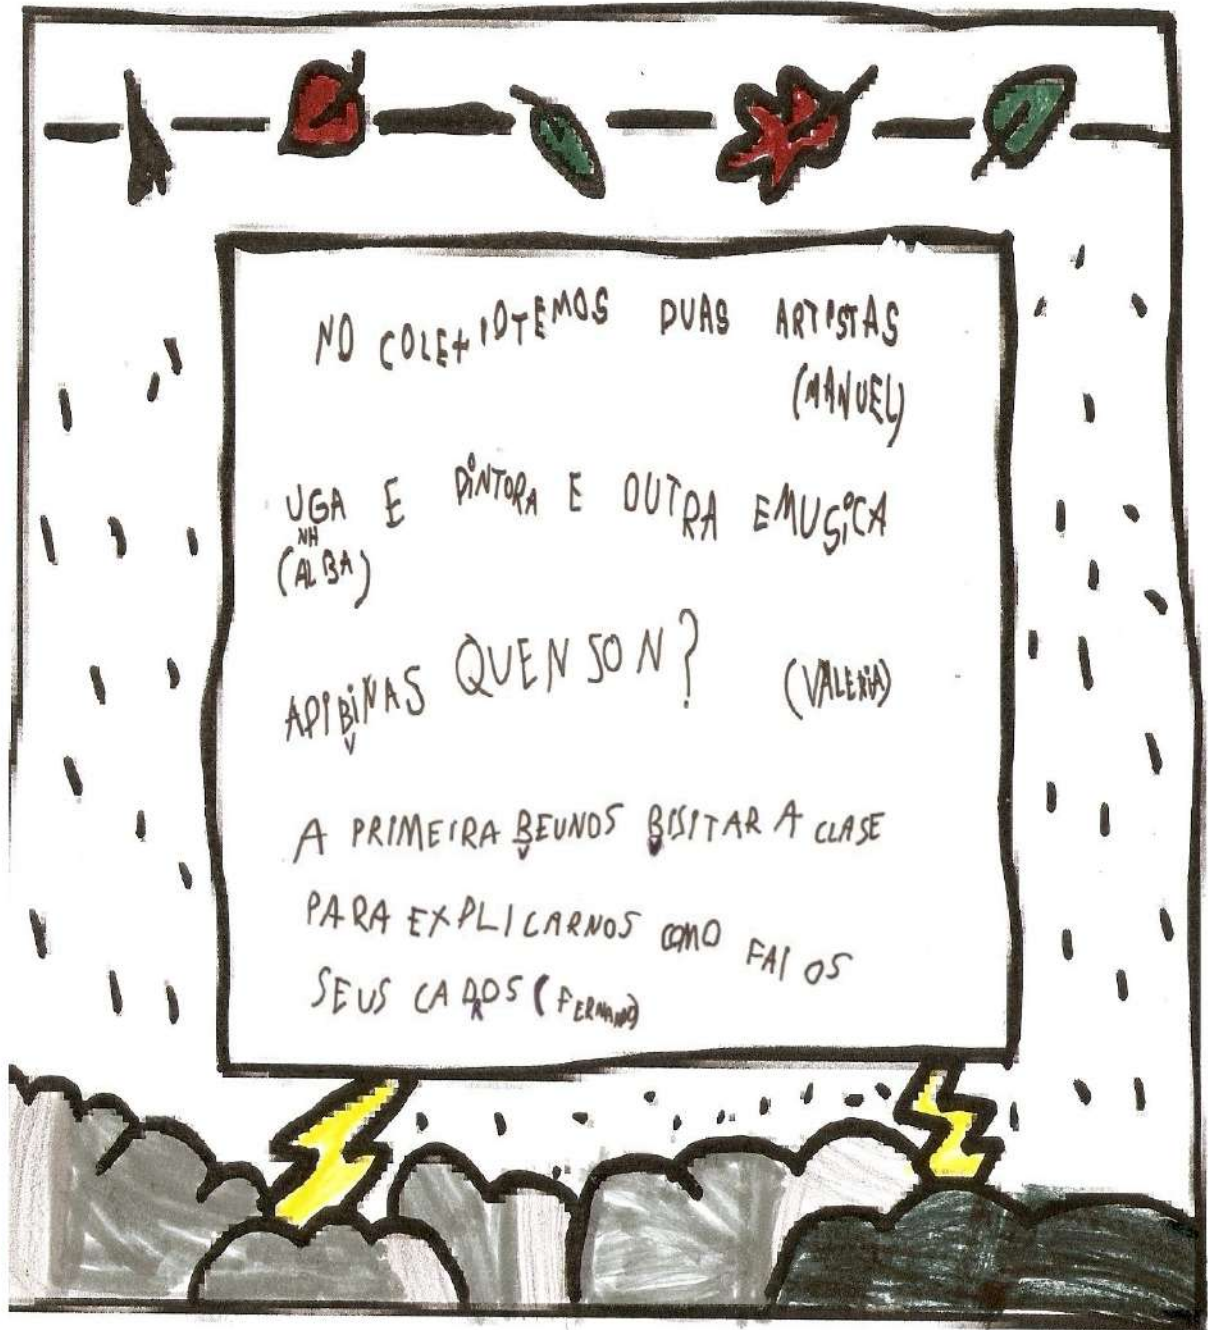 NO COLEXIOTEMOS DUAS ARTISTAS
(MANUEL)
UGA E PINTORA E OUTRA EMUSICA
NH
(ALBA)
ADIBIÑAS QUEN SON? (VALERIA)
V
A PRIMEIRA BEUNOS BISITAR A CLASE
V V
PARA EXPLICARNOS COMO FAI OS
SEUS CADROS (FERNANDO)